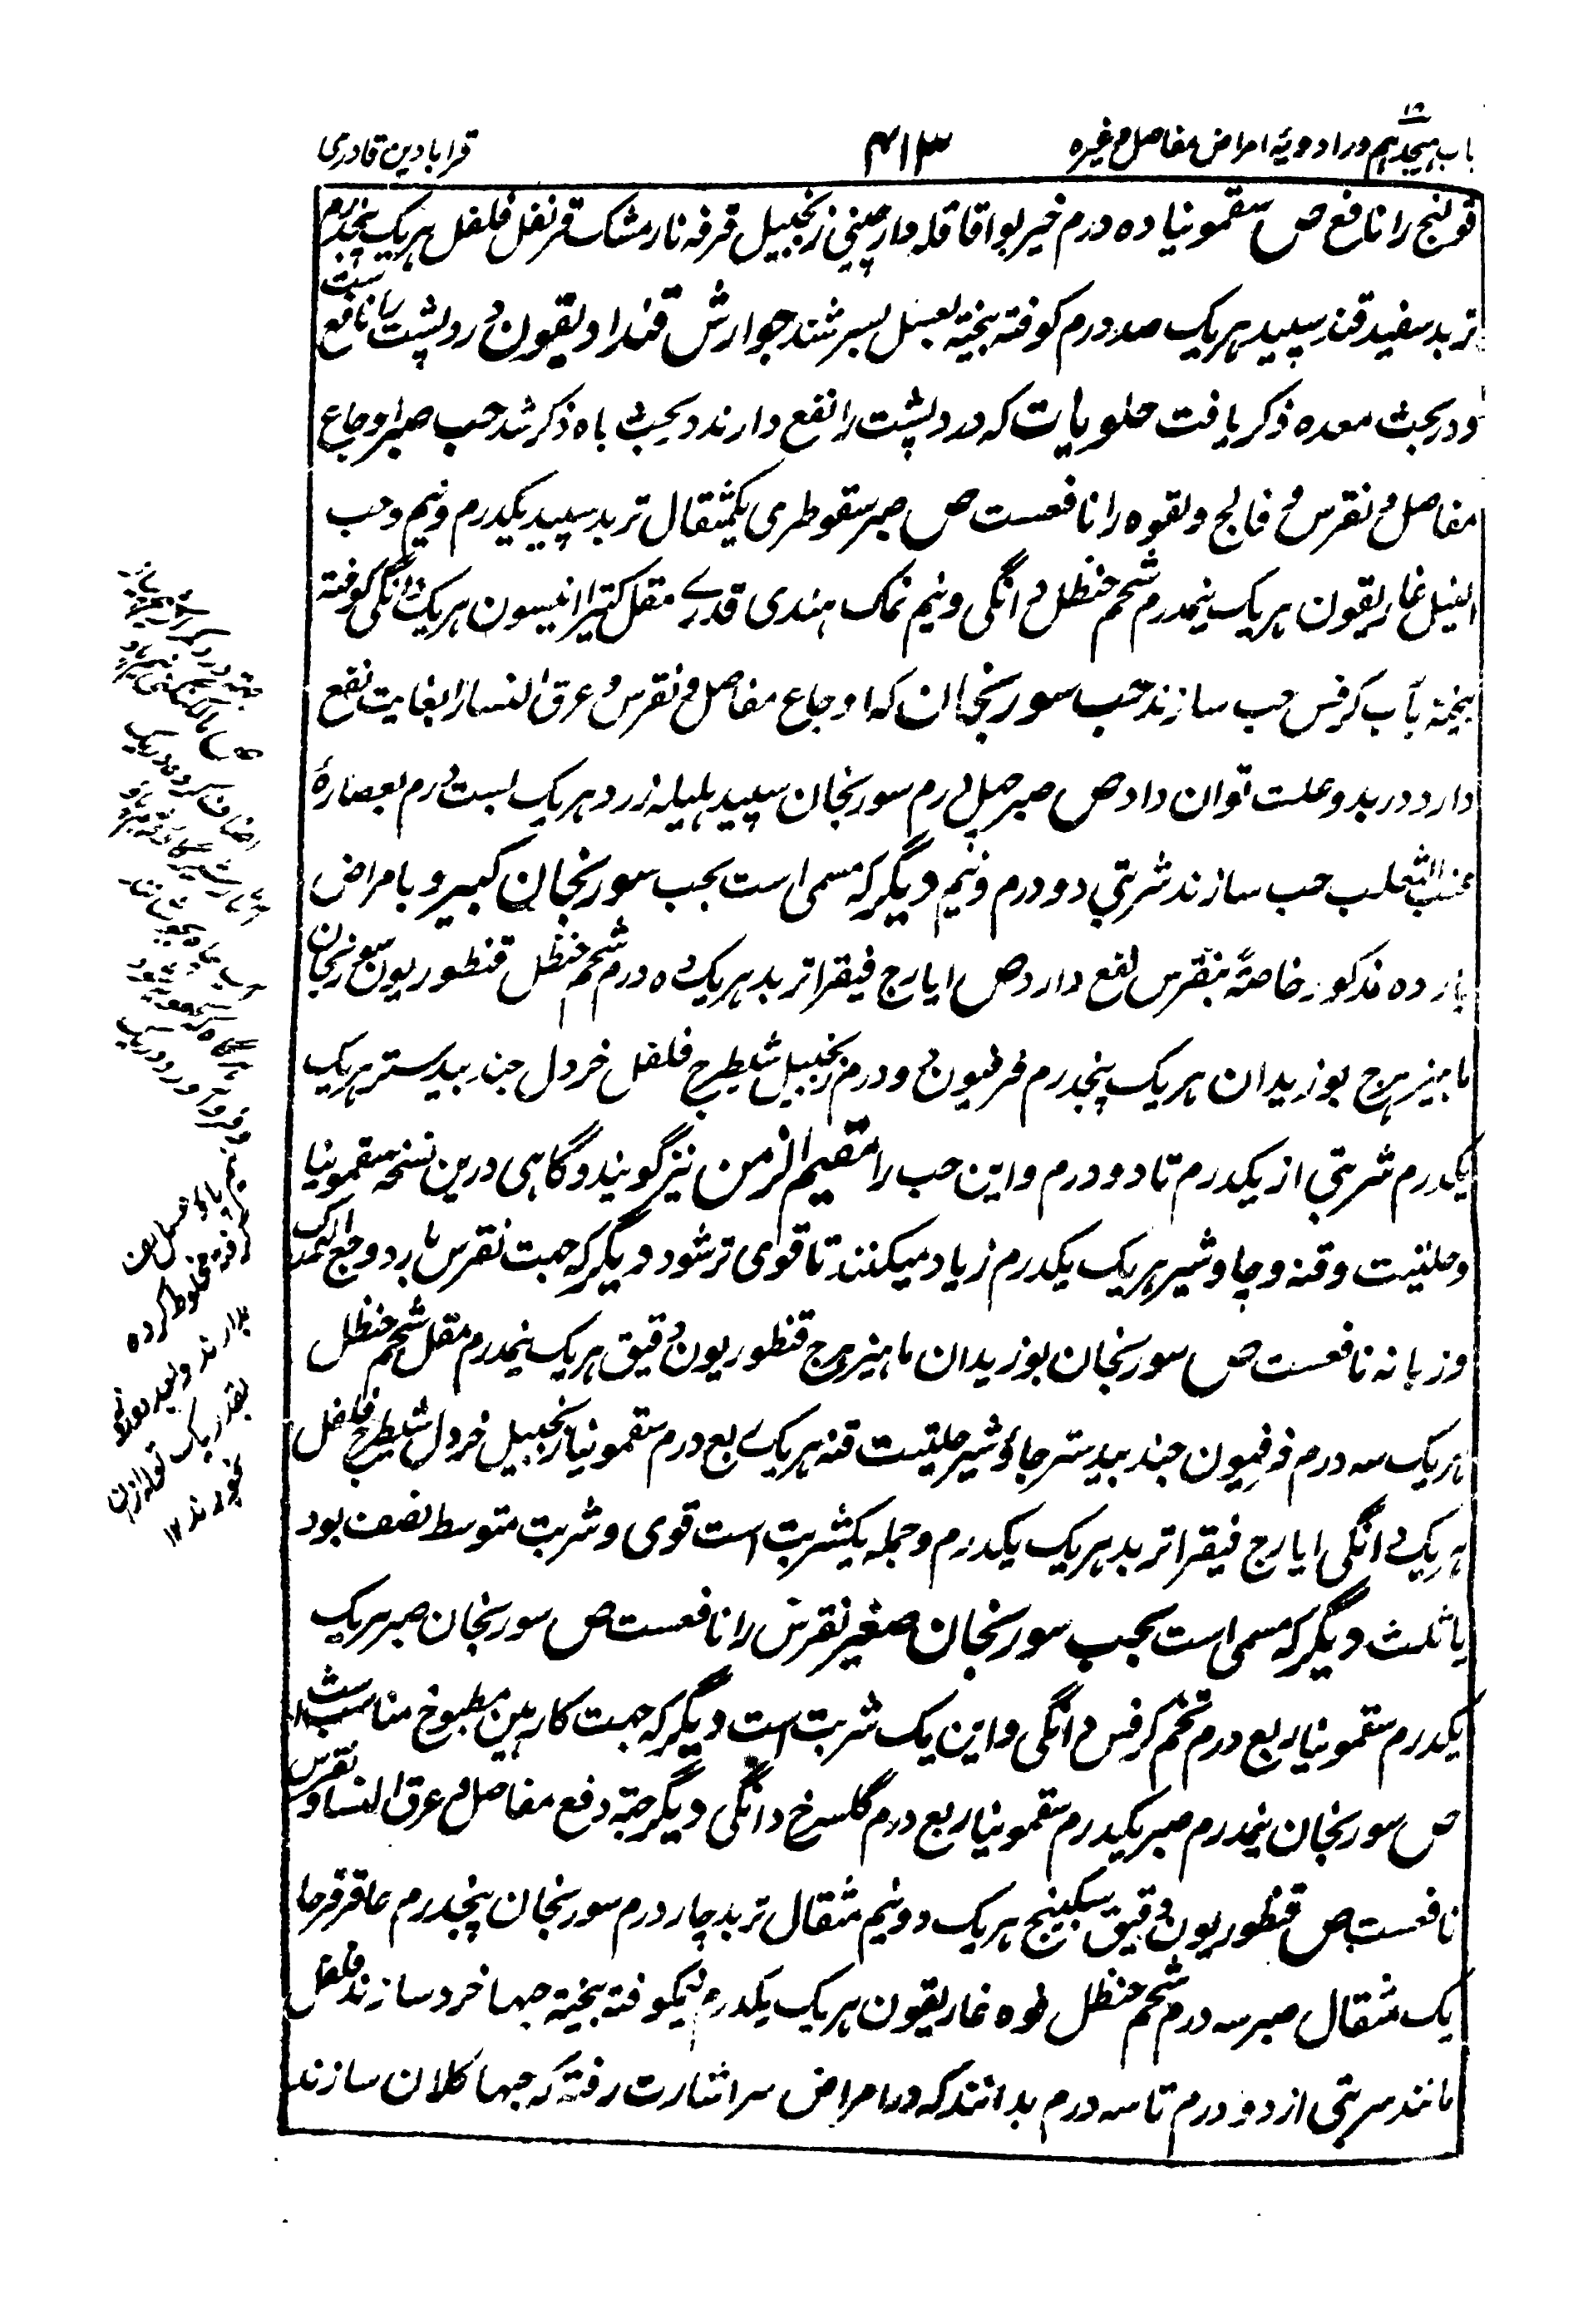 باب هیجدهم در ادویهٔ امراض مفاصل و غیره
۴۱۳
قرابادین قادری
قولنج را نافع ص سقمونیا ده درم خیربوا قاقله دارچینی زنجبیل قرفه نارمشک قرنفل فلفل هریک پنجدرم
تربد سفید قند سپید هریک صد درم کوفته بیخته بعسل بسرشند جوارش قندادیقون درد پشت را نافع ست
و در بحث معده ذکر یافت حلویات که درد پشت را نفع دارند در بحث باه ذکر شد حب صبر اوجاع
مفاصل و نقرس و فالج و لقوه را نافعست ص صبر سقوطری یکمثقال تربد سپید یکدرم و نیم و حب
النیل غاریقون هریک نیمدرم شحم حنظل دانگی و نیم نمک هندی قدرے مقل کتیرا انیسون هریک دانگی کوفته
بیخته بآب کرفس حب سازند حب سورنجان که اوجاع مفاصل و نقرس و عرق النسا را بغایت نفع
دارد در بدو علت توان داد ص صبر چهل درم سورنجان سپید هلیله زرد هریک بست درم بعصارهٔ
عنب الثعلب حب سازند شربتی دو درم و نیم دیگر که مسمی است بحب سورنجان کبیر و بامراض
بارده مذکور خاصةً بنقرس نفع دارد ص ایارج فیقرا تربد هریک ده درم شحم حنظل قنطوریون سورنجان
ماهیزهرج بوزیدان هریک پنجدرم فرفیون دو درم زنجبیل شیطرج فلفل خردل جندبیدستر هریک
یکدرم شربتی از یکدرم تا دو درم و این حب را مقیم الزمن نیز گویند و گاهی درین نسخه سقمونیا
و حلتیت و قنه و جاوشیر هریک یکدرم زیاد میکنند تا قوی تر شود دیگر که جهت نقرس بارد و وجع الورک
و زبانه نافعست ص سورنجان بوزیدان ماهیزهرج قنطوریون دقیق هریک نیمدرم مقل شحم حنظل
هریک سه درم فرفیون جندبیدستر جاؤشیر حلتیت قنه هریک ربع درم سقمونیا زنجبیل خردل شیطرج فلفل
هریک دانگی ایارج فیقرا تربد هریک یکدرم و جمله یکشربت است قوی و شربت متوسط نصف بود
یا ثلث دیگر که مسمی است بحب سورنجان صغیر نقرس را نافعست ص سورنجان صبر هریک
یکدرم سقمونیا ربع درم تخم کرفس دانگی و این یک شربت است دیگر که جهت کارهین مطبوخ مناسب ست
ص سورنجان نیمدرم صبر یکدرم سقمونیا ربع درم گلسرخ دانگی دیگر جهة دفع مفاصل و عرق النسا و نقرس
نافعست ص قنطوریون دقیق سکبینج هریک دو نیم مثقال تربد چار درم سورنجان پنجدرم عاقرقرحا
یک مثقال صبر سه درم شحم حنظل فوه غاریقون هریک یکدرم نیکوفته بیخته حبها خرد سازند فلفل
مانند شربتی از دو درم تا سه درم بدانند که در امراض سر اشارت رفته که حبها کلان سازند
مخلوط کرده
بقدر یک توله ازان
خورند ۱۲